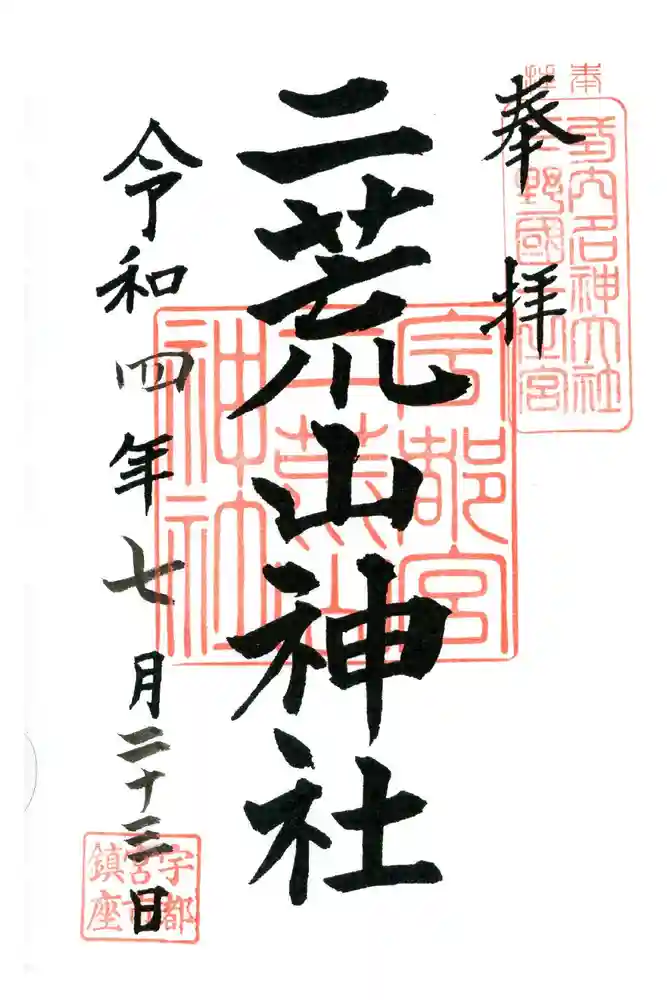 奉拝
式内名神大社
下野國一之宮
二荒山神社
宇都宮
二荒山
神社
令和四年七月二十三日
宇都
宮市
鎮座